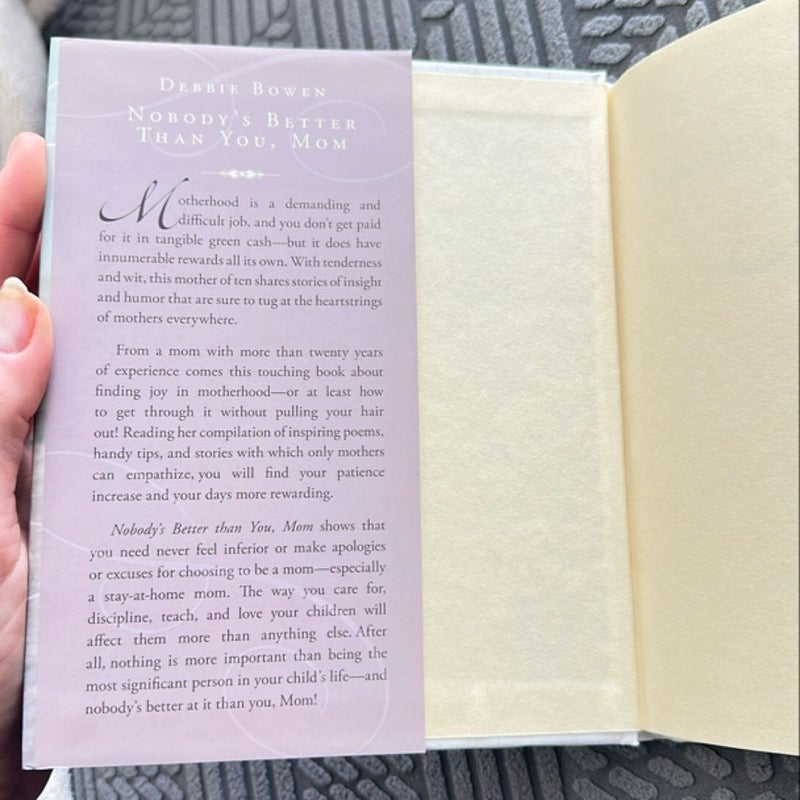 Debbie Bowen
Nobody's Better
Than You, Mom
Motherhood is a demanding and
difficult job, and you don't get paid
for it in tangible green cash—but it does have
innumerable rewards all its own. With tenderness
and wit, this mother of ten shares stories of insight
and humor that are sure to tug at the heartstrings
of mothers everywhere.
From a mom with more than twenty years
of experience comes this touching book about
finding joy in motherhood—or at least how
to get through it without pulling your hair
out! Reading her compilation of inspiring poems,
handy tips, and stories with which only mothers
can empathize, you will find your patience
increase and your days more rewarding.
Nobody's Better than You, Mom shows that
you need never feel inferior or make apologies
or excuses for choosing to be a mom—especially
a stay-at-home mom. The way you care for,
discipline, teach, and love your children will
affect them more than anything else. After
all, nothing is more important than being the
most significant person in your child's life—and
nobody's better at it than you, Mom!